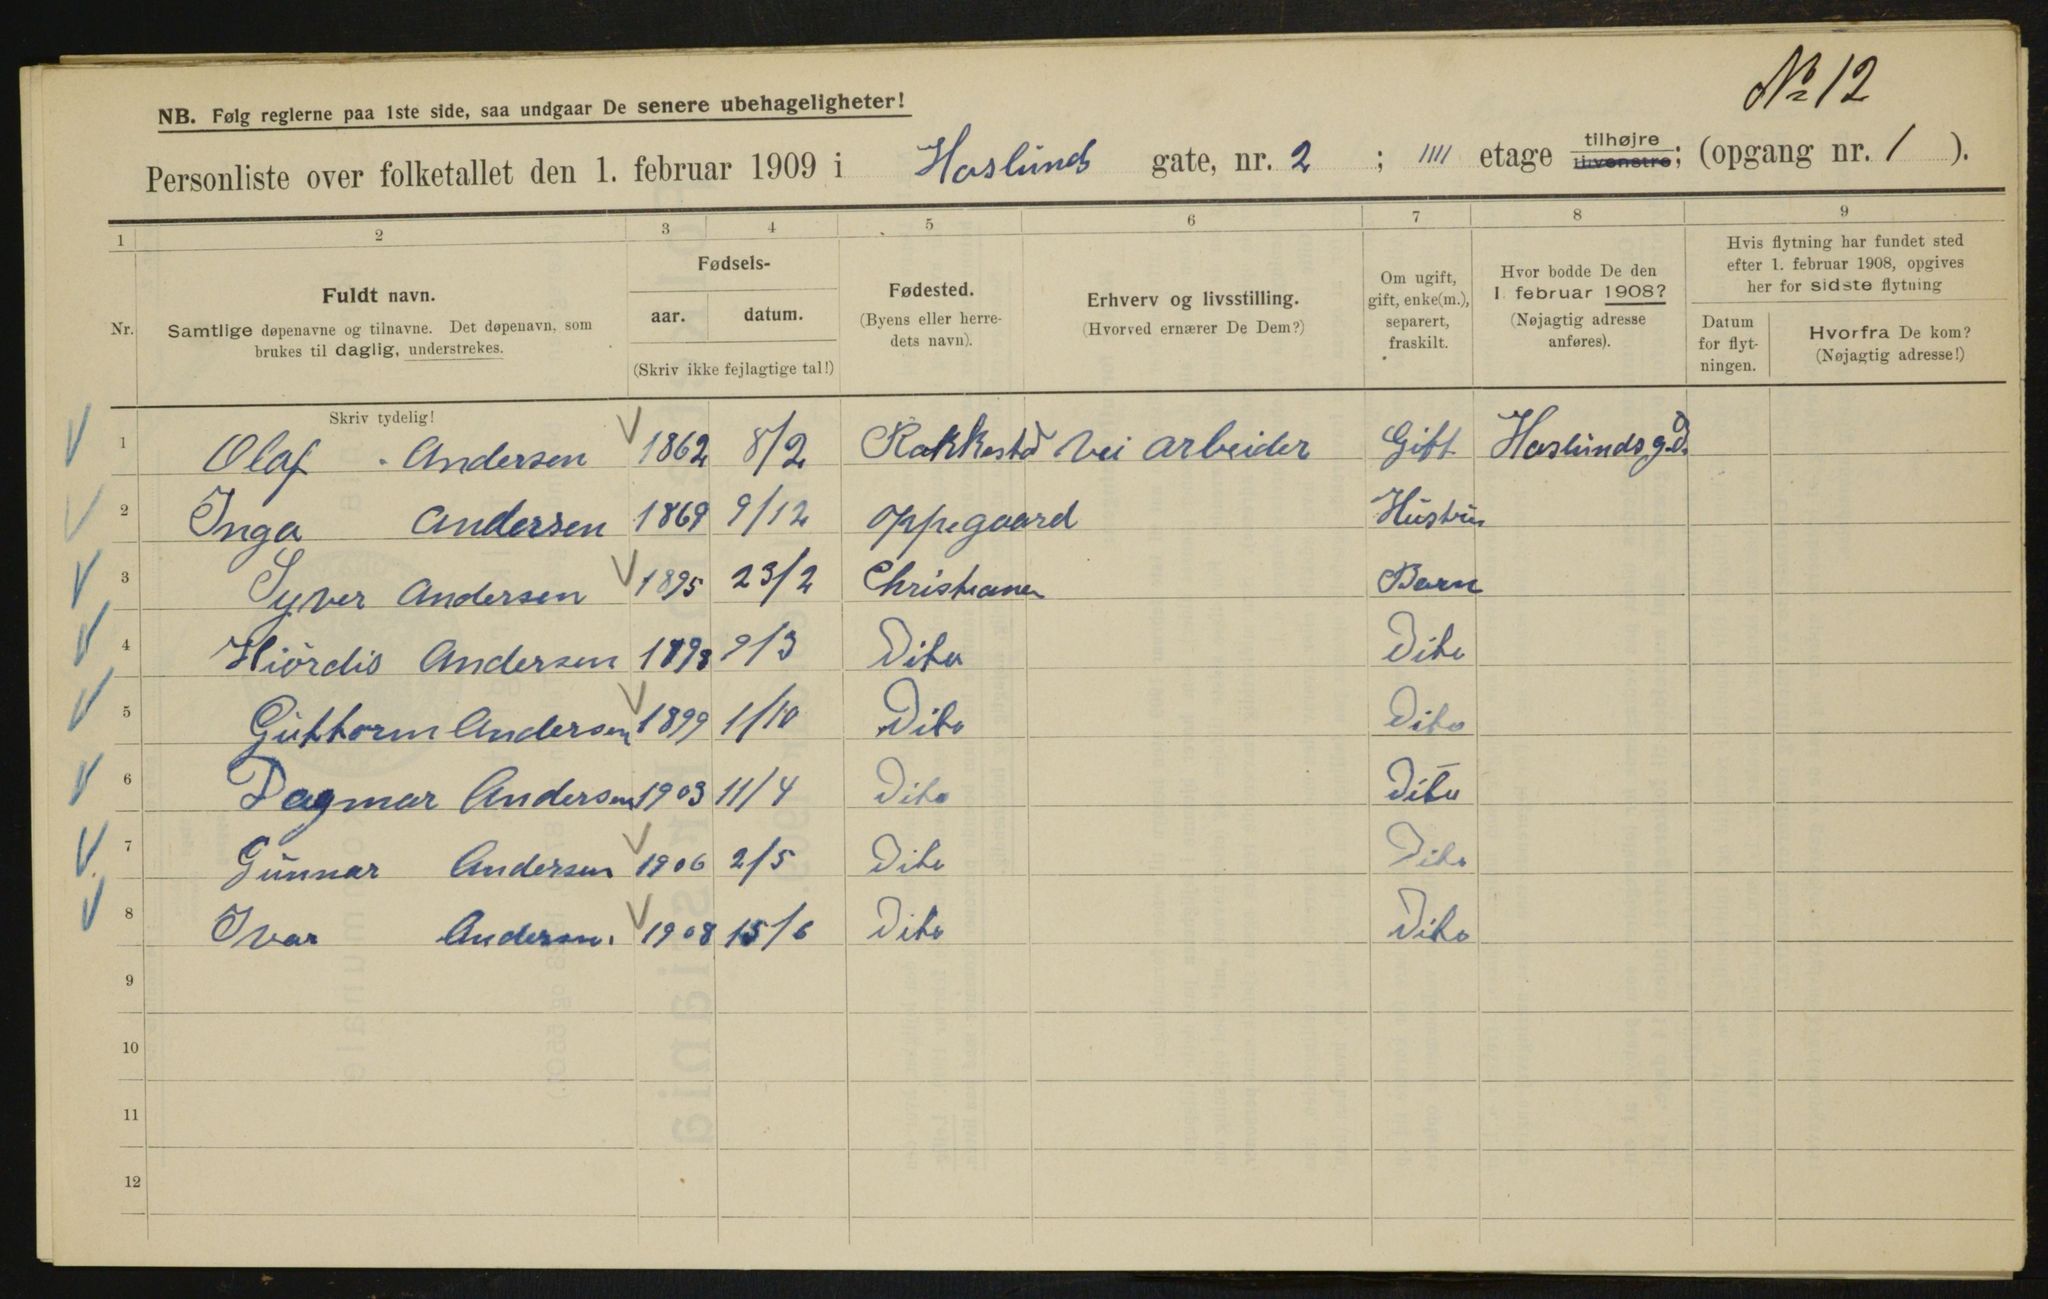 No 12
NB. Følg reglerne paa 1ste side, saa undgaar De senere ubehageligheter!
Personliste over folketallet den 1. februar 1909 i Haslunds gate, nr. 2 ; IIII etage tilhøjre tilvenstre; (opgang nr. 1 ).
1 2 3 4 5 6 7 8 9
Nr. Fuldt navn. Samtlige døpenavne og tilnavne. Det døpenavn, som brukes til daglig, understrekes.
Fødsels- aar. datum. (Skriv ikke fejlagtige tal!)
Fødested. (Byens eller herredets navn).
Erhverv og livsstilling. (Hvorved ernærer De Dem?)
Om ugift, gift, enke(m.), separert, fraskilt.
Hvor bodde De den 1. februar 1908? (Nøjagtig adresse anføres).
Hvis flytning har fundet sted efter 1. februar 1908, opgives her for sidste flytning
Datum for flytningen. Hvorfra De kom? (Nøjagtig adresse!)
Skriv tydelig!
1 Olaf Andersen 1862 8/2 Rakkestad Vei arbeider Gift Haslundsgd.
2 Inga Andersen 1869 9/12 Oppegaard Hustru
3 Syver Andersen 1895 23/2 Christiania Barn
4 Hiördis Andersen 1898 9/3 Dito Dito
5 Guttorm Andersen 1899 1/10 Dito Dito
6 Dagmar Andersen 1903 11/4 Dito Dito
7 Gunnar Andersen 1906 2/5 Dito Dito
8 Ivar Andersen. 1908 15/6 Dito Dito
9
10
11
12